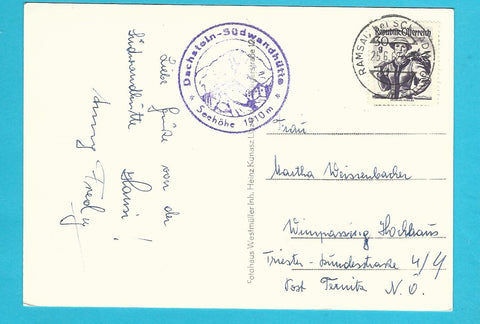 Liebe Grüße von der
Südwandhütte
Hansi!
Dachstein-Südwandhütte
* Seehöhe 1910m *
Fotohaus Westmüller Inh. Heinz
RAMSAU bei SCHLADMING
Republik Österreich
Frau
Martha Weissenbacher
Wimpassing Hochhaus
Triester-bundesstrasse 4/4
Post Ternitz N.Ö.